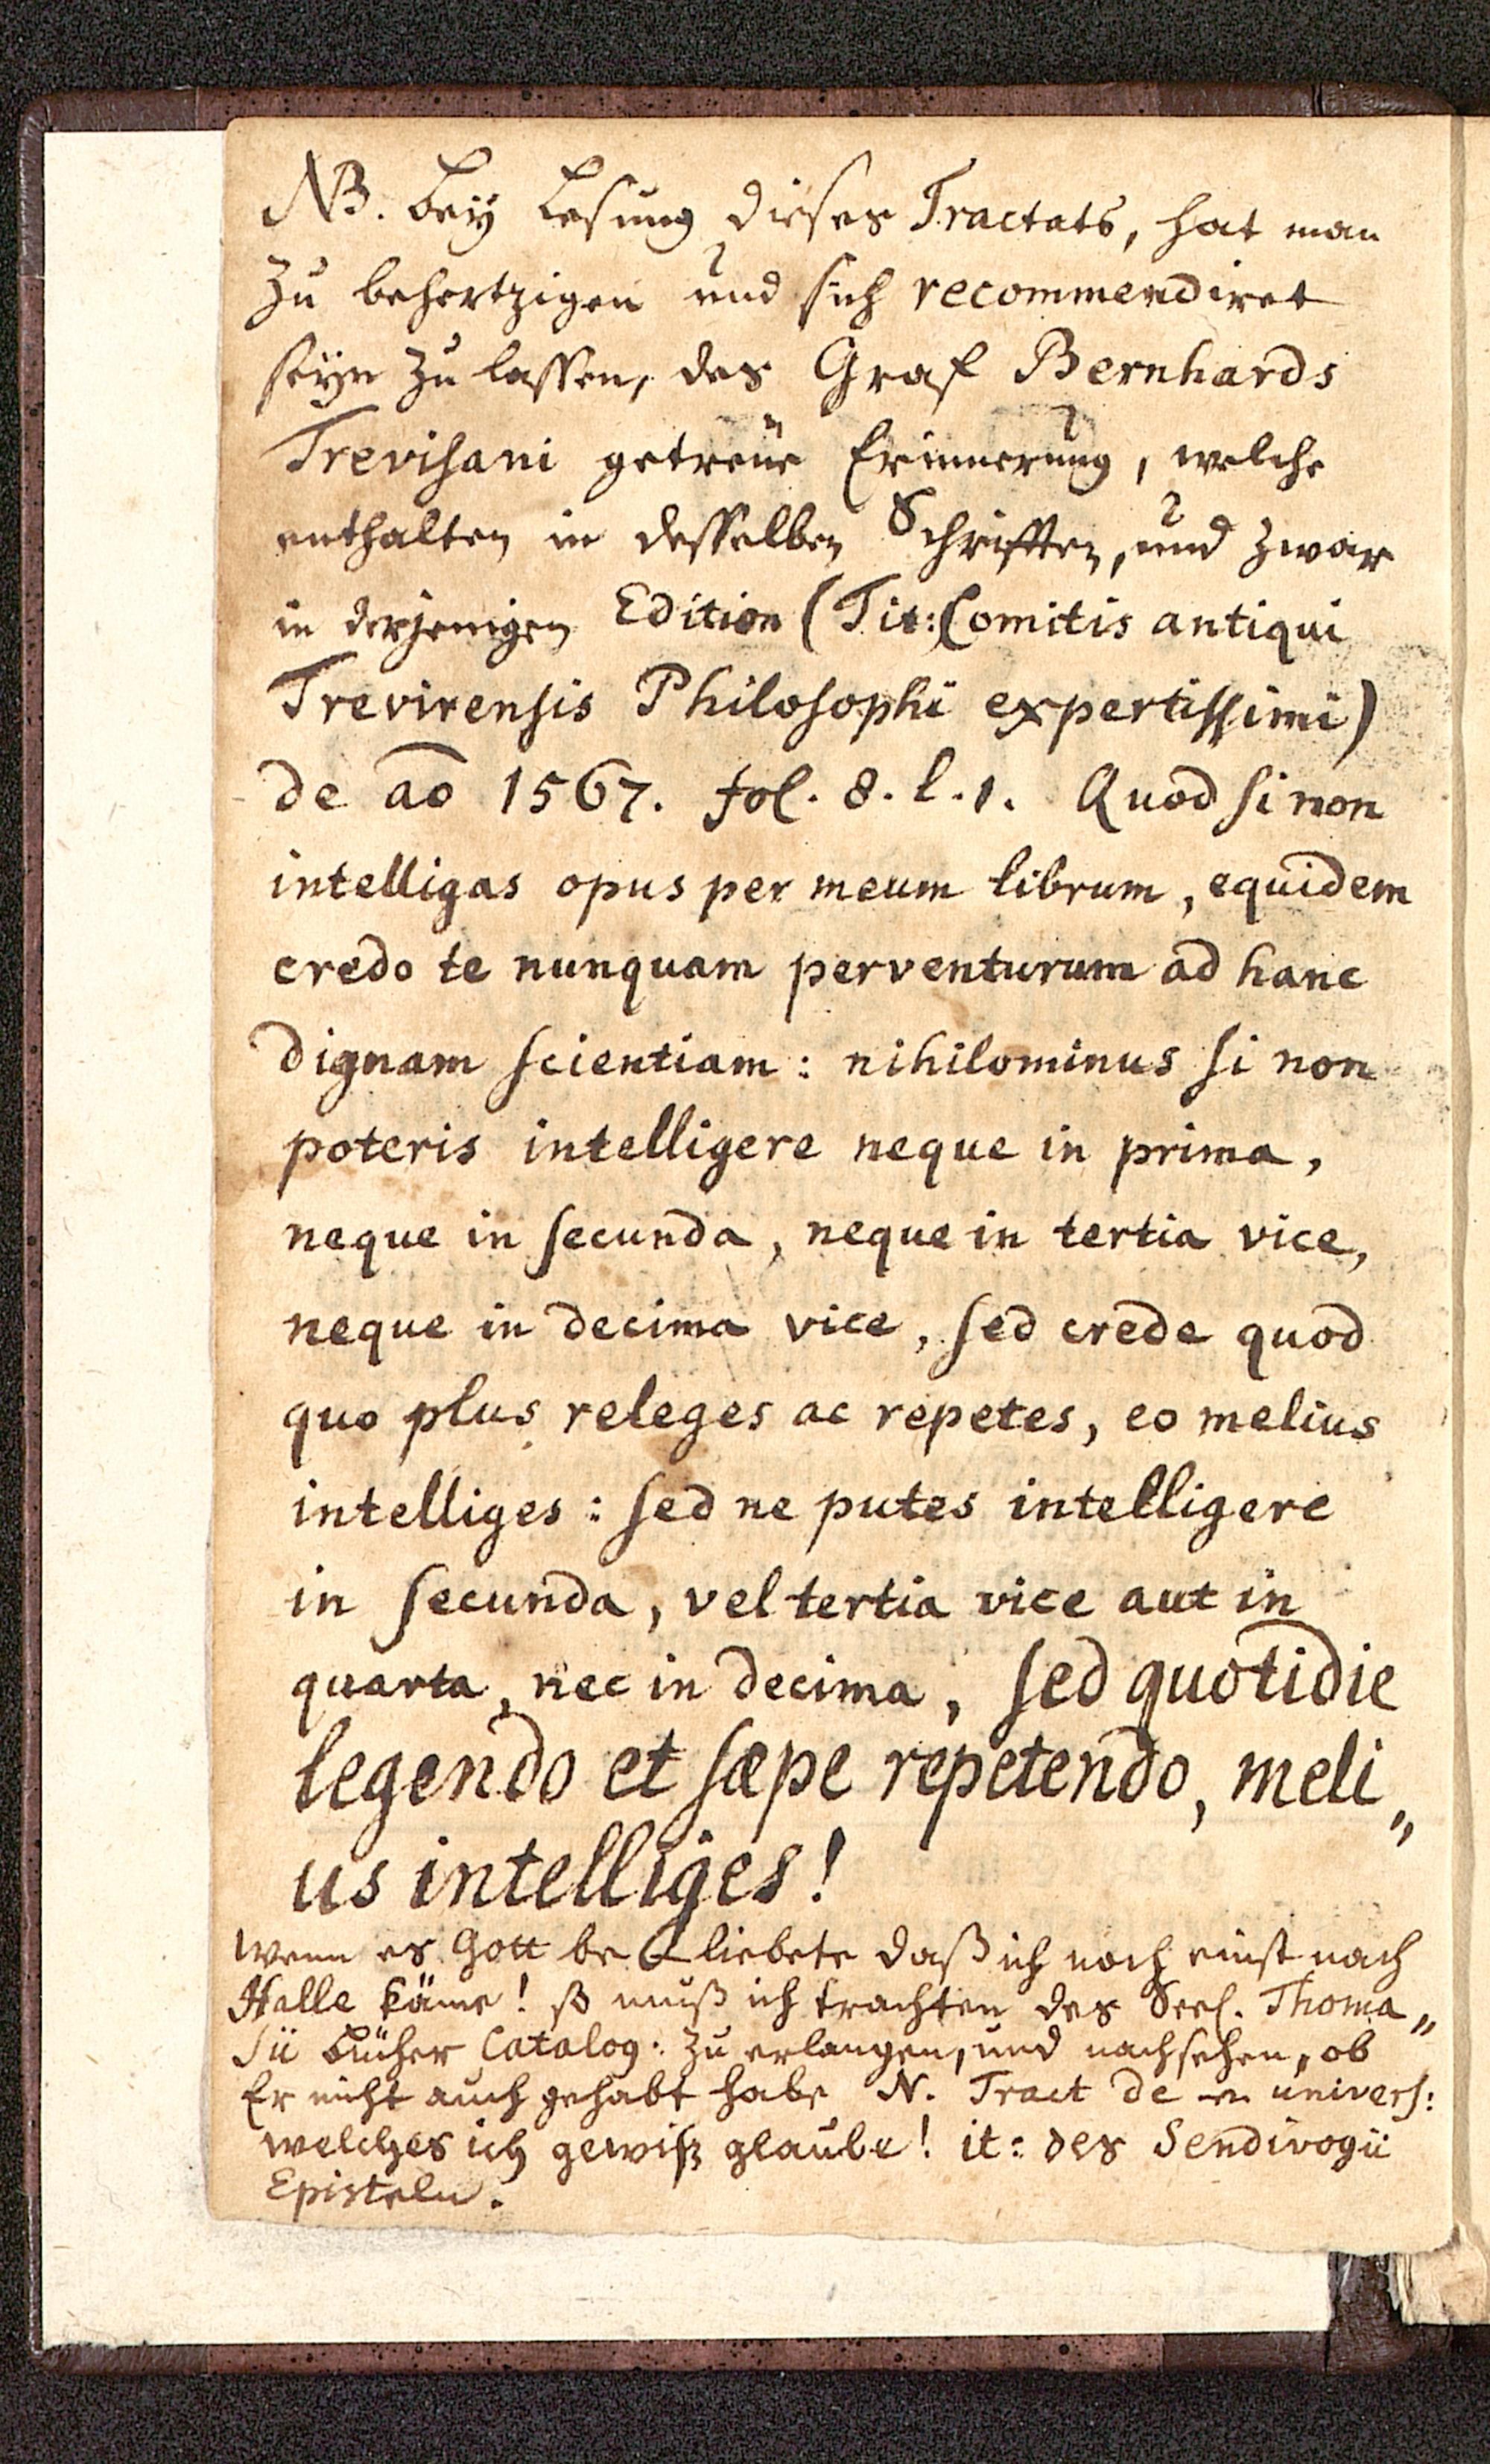 NB. Bey Lesung dieses Tractats, hat man
zu behertzigen und sich recommendiret
seyn zu lassen, des Graf Bernhards
Trevisani getreüe Erinnerung, welche
enthalten in desselben Schrifften, und zwar
in derjenigen Edition (Tit: Comitis antiqui
Trevirensis Philosophi expertissimi)
de ao 1567. fol. 8. l. 1. Quod si non
intelligas opus per meum librum, equidem
credo te nunquam perventurum ad hanc
dignam scientiam: nihilominus si non
poteris intelligere neque in prima,
neque in secunda, neque in tertia vice,
neque in decima vice, sed crede quod
quo plus releges ac repetes, eo melius
intelliges: sed ne putes intelligere
in secunda, vel tertia vice aut in
quarta, nec in decima, sed quotidie
legendo et sæpe repetendo, meli„
us intelliges!
Wenn es Gott beliebete daß ich noch einst nach
Halle käme! so muß ich trachten des Seel. Thoma„
sii Bücher Catalog: zu erlangen, und nachsehen, ob
Er nicht auch gehabt habe N. Tract de univers:
welches ich gewiß glaube! it: des Sendivogii
Episteln.